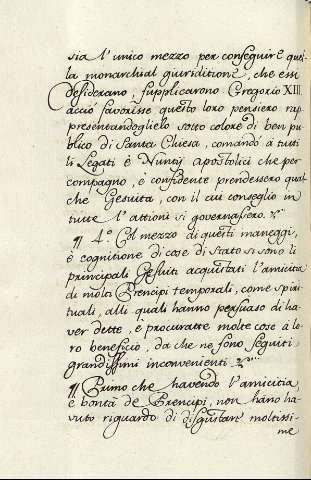 sia l'unico mezzo per conseguire quel
la monarchial giuriditione, che essi
desiderano, supplicarono Gregorio XIII
acciò favorisse questo loro pensiero rap
presentandoglielo sotto colore di ben pu
blico di Santa Chiesa, comandò à tutti
li Legati è Nuntij Apostolici che per
compagno, è confidente prendessero qual
che Gesuita, con il cui conseglio in
tutte l'attioni si governassero.
¶ 4.º Col mezzo di questi maneggi,
è cognitione di cose di stato si sono li
principali Gesuiti acquistati l'amicitia
di molti Prencipi temporali, come spiri
tuali, alli quali hanno persuaso di ha
ver dette, è procurate molte cose à lo
ro beneficio, da che ne sono seguiti
grandissimi inconvenienti
¶ Primo che havendo l'amicitia,
è bontà de Prencipi, non hano ha
vuto riguardo di disgustare moltissi
me